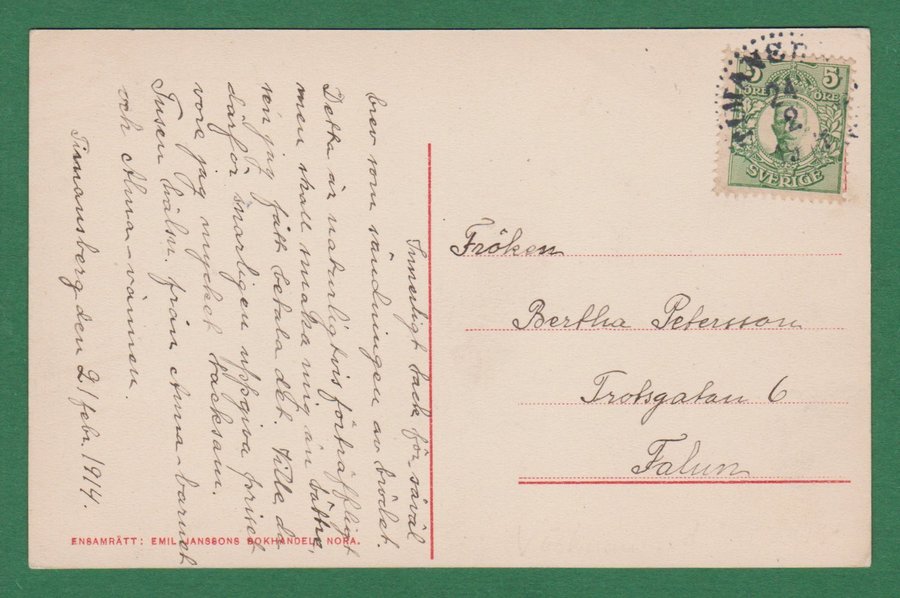 Innerligt tack för såväl
brev som sändningen av brödet.
Detta är naturligtvis förträffligt
men skall smaka mig än bättre,
sen jag fått betala det. Ville du
därför snarligen uppgiva priset
vore jag mycket tacksam.
Tusen hälsn. från Anna-barnet
och Alma-vännen.
Timansberg den 21 febr. 1914.
ENSAMRÄTT: EMIL JANSSONS BOKHANDEL, NORA.
5 5
ÖRE ÖRE
SVERIGE
24
2
Fröken
Bertha Petersson
Trotsgatan 6
Falun